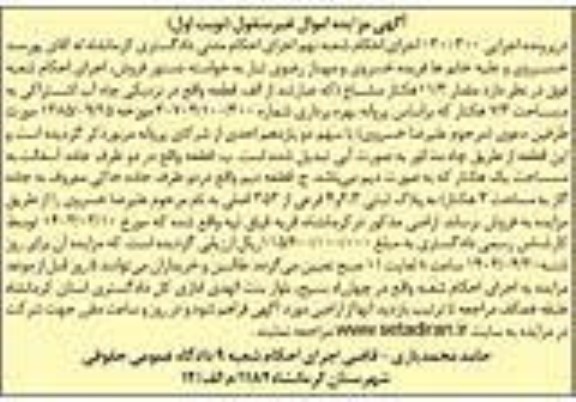 آگهی مزایده اموال غیرمنقول (نوبت اول)
در پرونده اجرایی اجرای احکام شعبه نهم اجرای احکام مدنی دادگستری کرمانشاه له آقای
خسروی و علیه خانم ها فریده خسروی و مهناز رضوی تبار به خواسته دستور فروش، اجرای احکام شعبه
فوق در نظر دارد مقدار ۱۱/۳ هکتار مشاع (که عبارتند از الف قطعه واقع در نزدیکی چاه آب اشتراکی به
مساحت ۷/۳ هکتار که براساس پروانه بهره برداری شماره مورخه ۱۳۸۵/۰۹/۱۵
طرفین دعوی (مرحوم علیرضا خسروی) با سهم دو یازدهم احدی از شرکای پروانه مزبور ذکر گردیده است و
این قطعه از طریق چاه مذکور به صورت آبی تبدیل شده است. ب قطعه واقع در دو طرف جاده آسفالت به
مساحت یک هکتار که به صورت دیم می‌باشد. ج قطعه دیم واقع در دو طرف جاده خاکی معروف به جاده
گاز به مساحت ۳ هکتار) به پلاک ثبتی فرعی از ۳۵۳ اصلی به نام مرحوم علیرضا خسروی را از طریق
مزایده به فروش برساند. اراضی مذکور در کرمانشاه قریه واقع شده که مورخ توسط
کارشناس رسمی دادگستری به مبلغ ریال ارزیابی گردیده است که مزایده آن برای روز
ساعت ۱۰ لغایت ۱۱ صبح تعیین می‌گردد. طالبین و خریداران می‌توانند از روز قبل از موعد
مزایده به اجرای احکام شعبه واقع در چهارراه بسیج، بلوار بنت الهدی اداری کل دادگستری استان کرمانشاه
طبقه همکف مراجعه تا ترتیب بازدید آنها از اراضی مورد آگهی فراهم شود و در روز و ساعت مقرر جهت شرکت
در مزایده به سایت www.setadiran.ir مراجعه نمایند.
حامد محمدیاری - قاضی اجرای احکام شعبه ۹ دادگاه عمومی حقوقی
شهرستان کرمانشاه ۲۱۸۲ م الف ۱۲